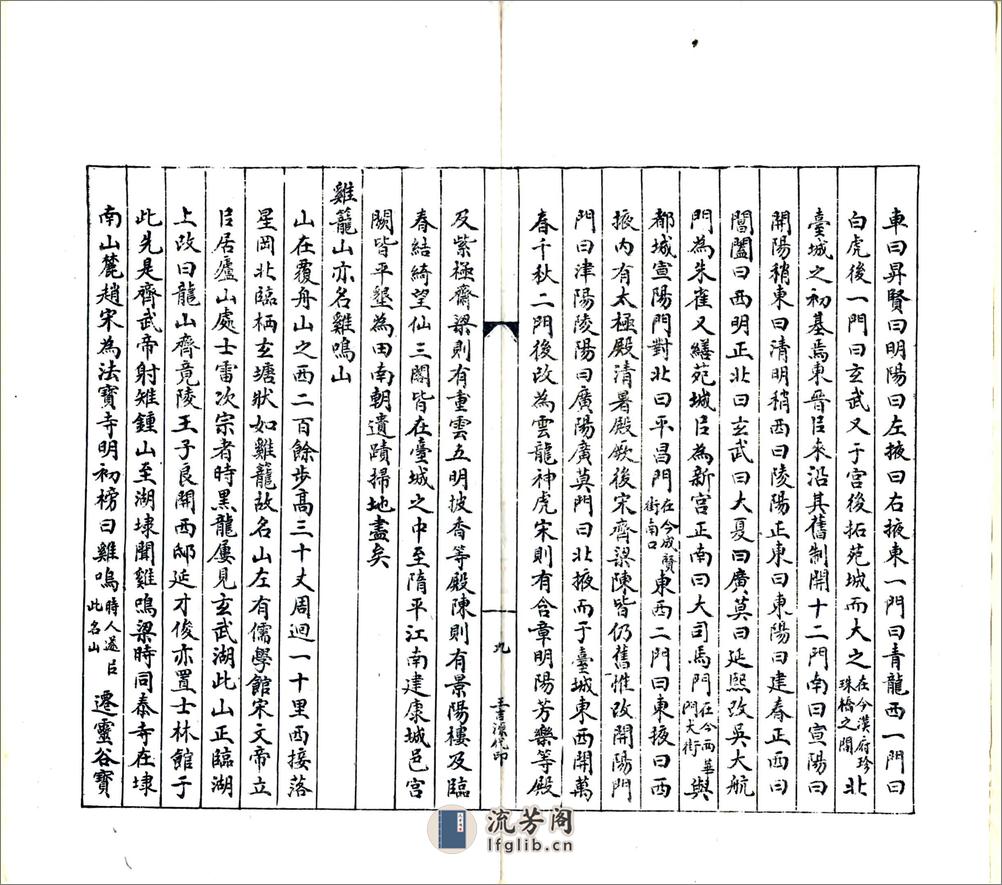 車曰昇賢曰明陽曰左掖曰右掖東一門曰青龍西一門曰
白虎後一門曰玄武又于宮後拓苑城而大之在今漢府珍珠橋之間北
臺城之初基焉東晉㠯來沿其舊制開十二門南曰宣陽曰
開陽稍東曰清明稍西曰陵陽正東曰東陽曰建春正西曰
閶闔曰西明正北曰玄武曰大夏曰廣莫曰延熙改吳大航
門為朱雀又繕苑城㠯為新宮正南曰大司馬門在今西華門大街與
都城宣陽門對北曰平昌門在今成賢街南口東西二門曰東掖曰西
掖內有太極殿清暑殿厥後宋齊梁陳皆仍舊惟改開陽門
門曰津陽陵陽曰廣陽廣莫門曰北掖而于臺城東西開萬
春千秋二門後改為雲龍神虎宋則有含章明陽芳樂等殿
九
及紫極齋梁則有重雲五明披香等殿陳則有景陽樓及臨
春結綺望仙三閣皆在臺城之中至隋平江南建康城邑宮
闕皆平墾為田南朝遺蹟掃地盡矣
雞籠山亦名雞鳴山
山在覆舟山之西二百餘步高三十丈周迴一十里西接落
星岡北臨栖玄塘狀如雞籠故名山左有儒學館宋文帝立
㠯居廬山處士雷次宗者時黑龍屢見玄武湖此山正臨湖
上改曰龍山齊竟陵王子良開西邸延才俊亦置士林館于
此先是齊武帝射雉鍾山至湖埭聞雞鳴梁時同泰寺在埭
南山麓趙宋為法寶寺明初榜曰雞鳴時人遂㠯此名山遷靈谷寶
流芳阁
lfglib.cn